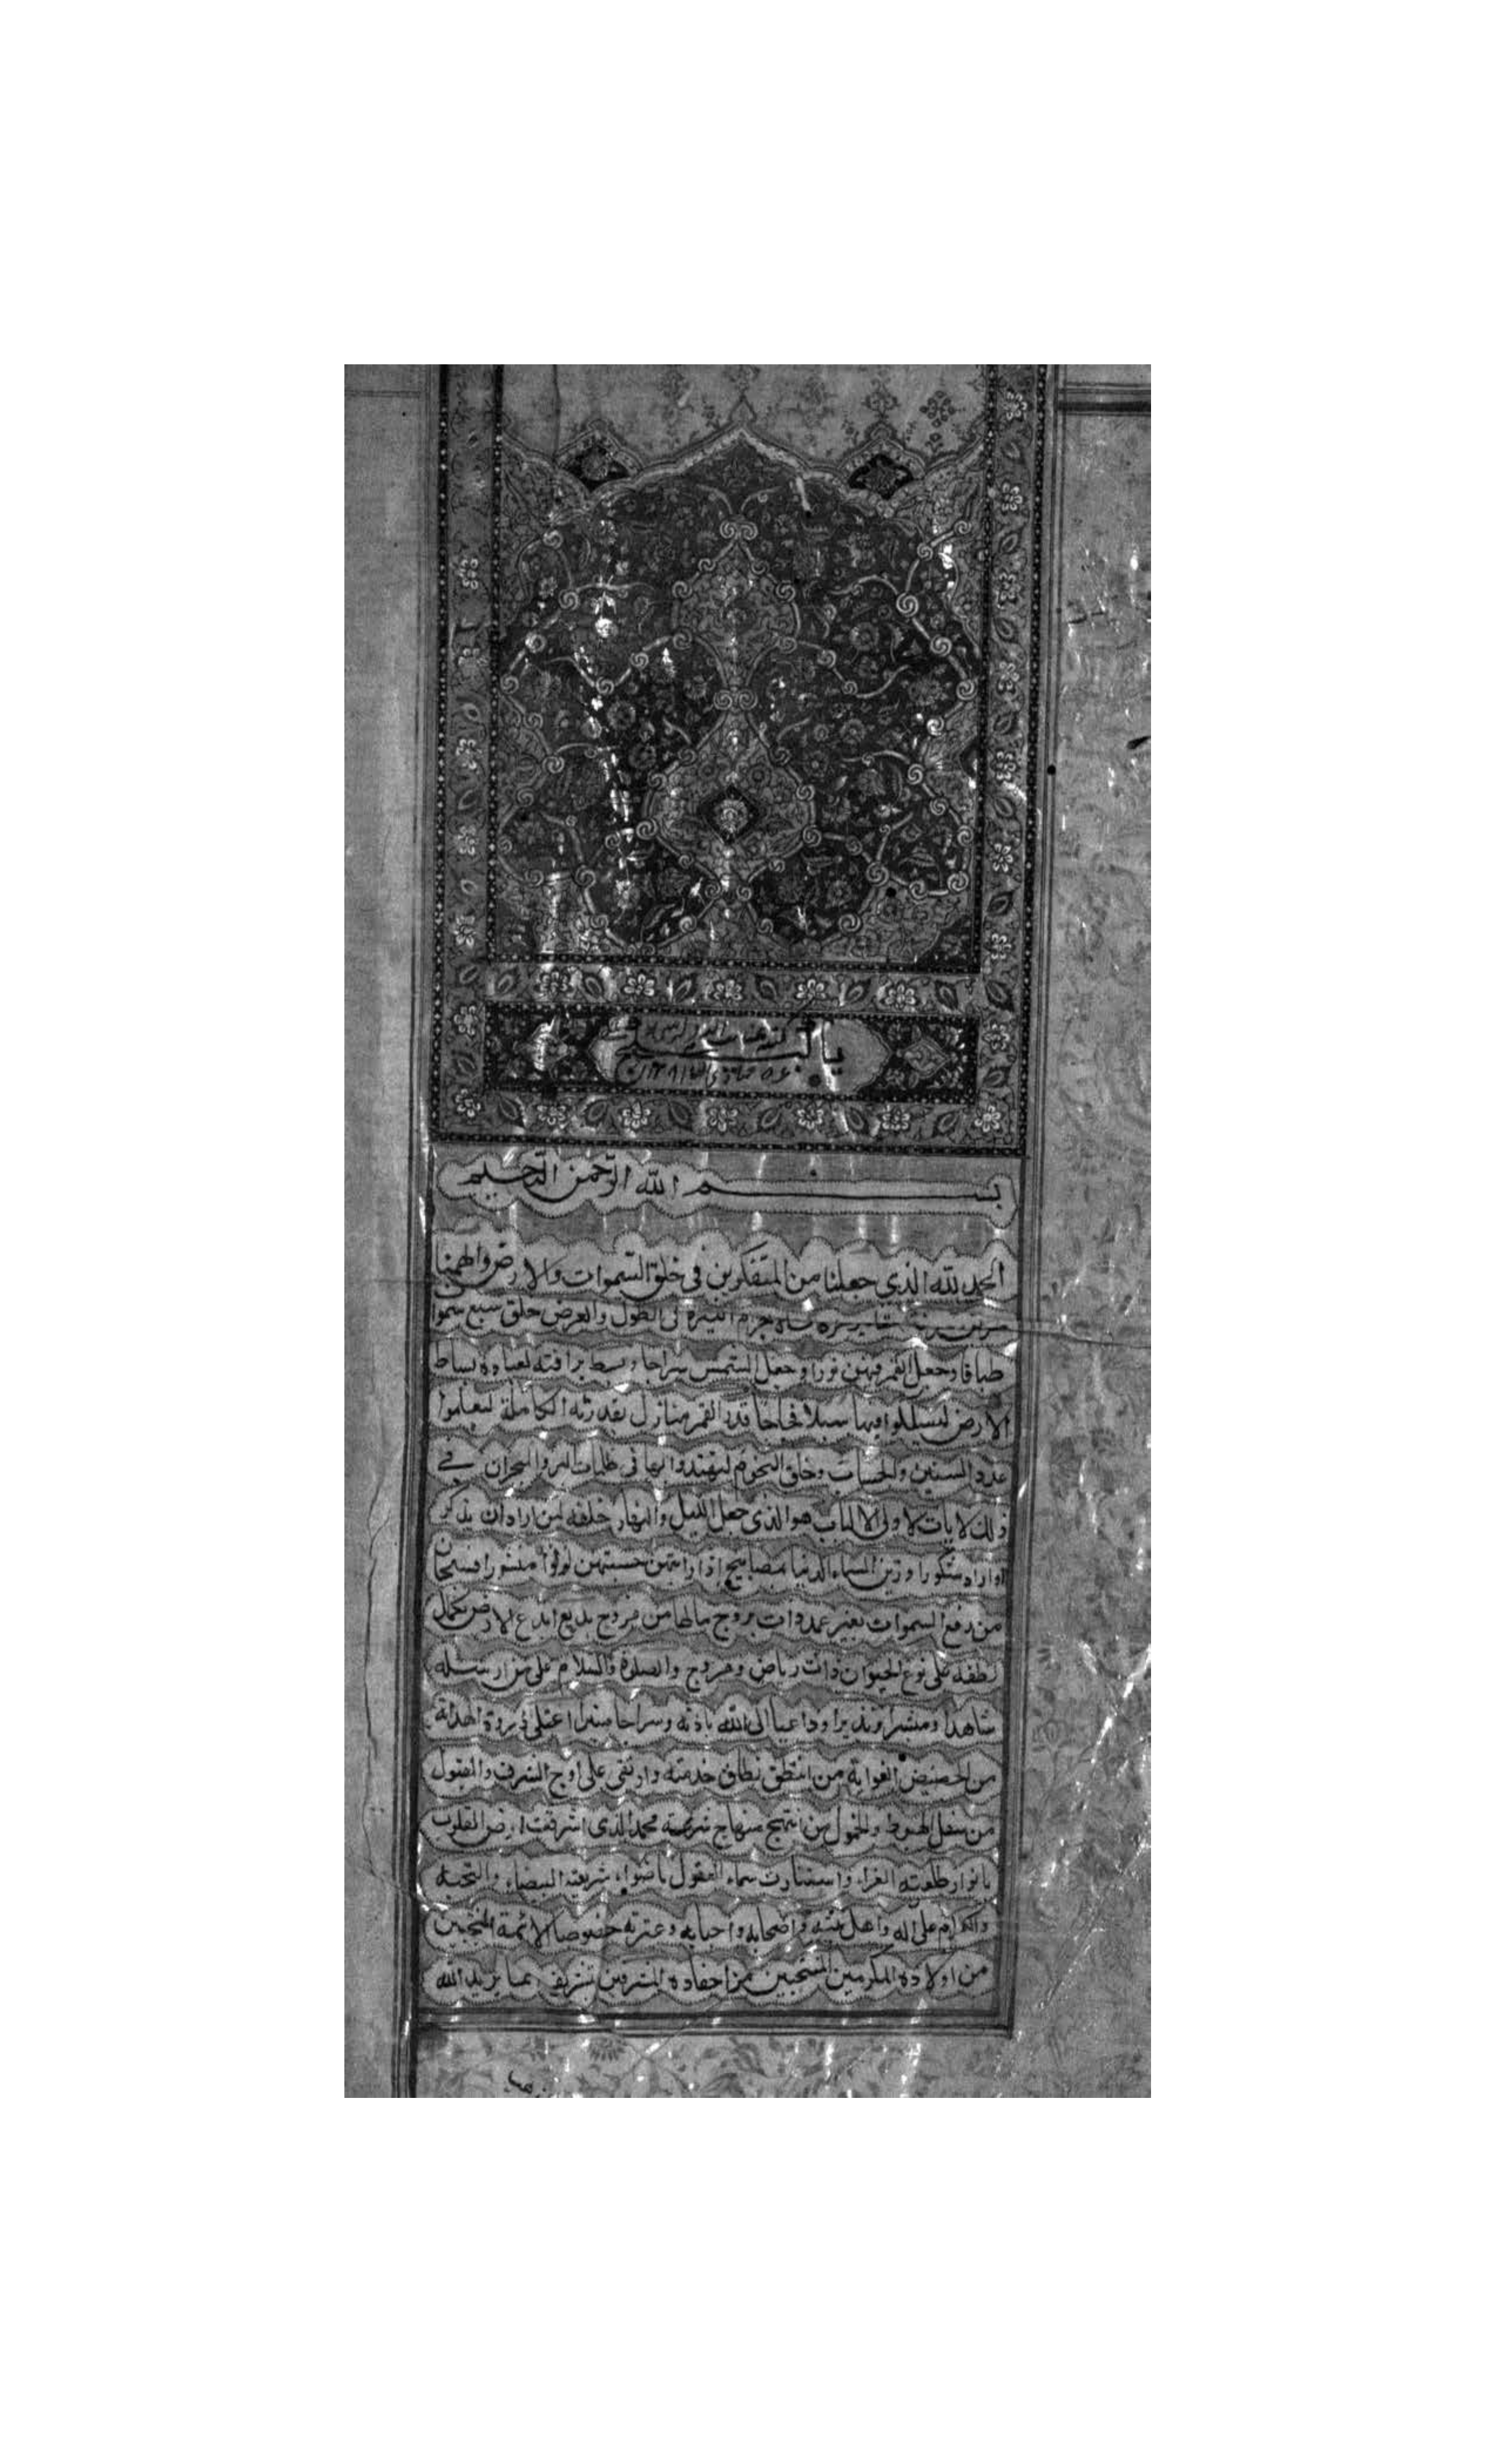 بسم الله الرحمن الرحيم
الحمد لله الذي جعلنا من المتفكرين في خلق السموات والارض والهمنا
في الطول والعرض خلق سبع سموا
طباقا وجعل القمر فيهن نورا وجعل الشمس سراجا وبسط برافته لعباده بساط
الارض ليسلكوا فيها سبلا فجاجا قدر القمر منازل بقدرته الكاملة ليعلموا
عدد السنين والحساب وخلق النجوم ليهتدوا بها في ظلمات البر والبحر ان في
ذلك لايات لاولي الالباب هو الذي جعل الليل والنهار خلفة لمن اراد ان يذكر
او اراد شكورا وزين السماء الدنيا بمصابيح اذا رايتهن حسبتهن لولوا منثورا فسبحان
من رفع السموات بغير عمد ذات بروج مالها من فروج بديع ابدع الارض بكمال
لطفه على نوع الحيوان ذات رياض ومروج والصلوة والسلام على من ارسله
شاهدا ومبشرا ونذيرا وداعيا الى الله باذنه وسراجا منيرا اعتلى ذروة الهداية
من الحضيض الغواية من انتطق نطاق خدمته وارتقى على اوج الشرف والقبول
من سفل الهبوط والخمول من انتهج منهاج شريعته محمد الذي اشرقت ارض القلوب
بانوار طلعته الغراء واستنارت سماء العقول باضواء شريعته البيضاء والتحية
والاكرام على آله واهل بيته واصحابه واحبابه وعترته خصوصا الائمة المنتجبين
من اولاده المكرمين المنتجبين من احفاده المشرفين بتشريف انما يريد الله